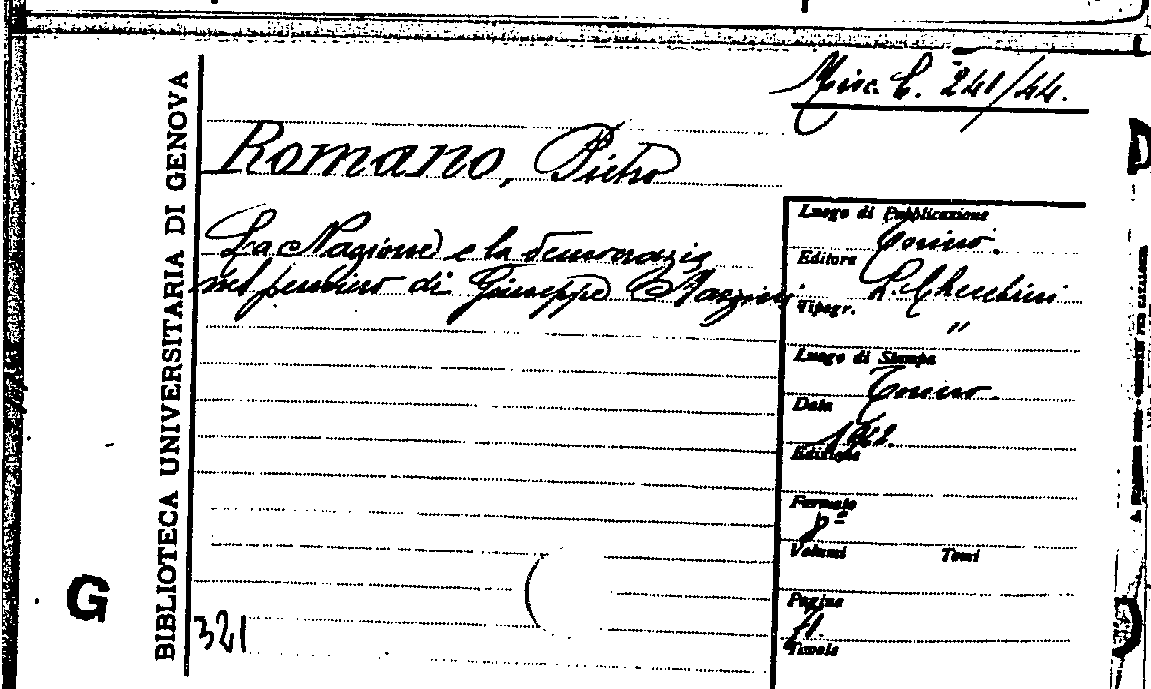 Misc. C. 241/44.
BIBLIOTECA UNIVERSITARIA DI GENOVA
Romano, Pietro
La Nazione e la democrazia
nel pensiero di Giuseppe Mazzini
Luogo di Pubblicazione
Torino.
Editore
L. Checchini
Tipogr.
"
Luogo di Stampa
Torino.
Data
Edizione
Formato
8º
Volumi Tomi
Pagine
Tavole
G
321